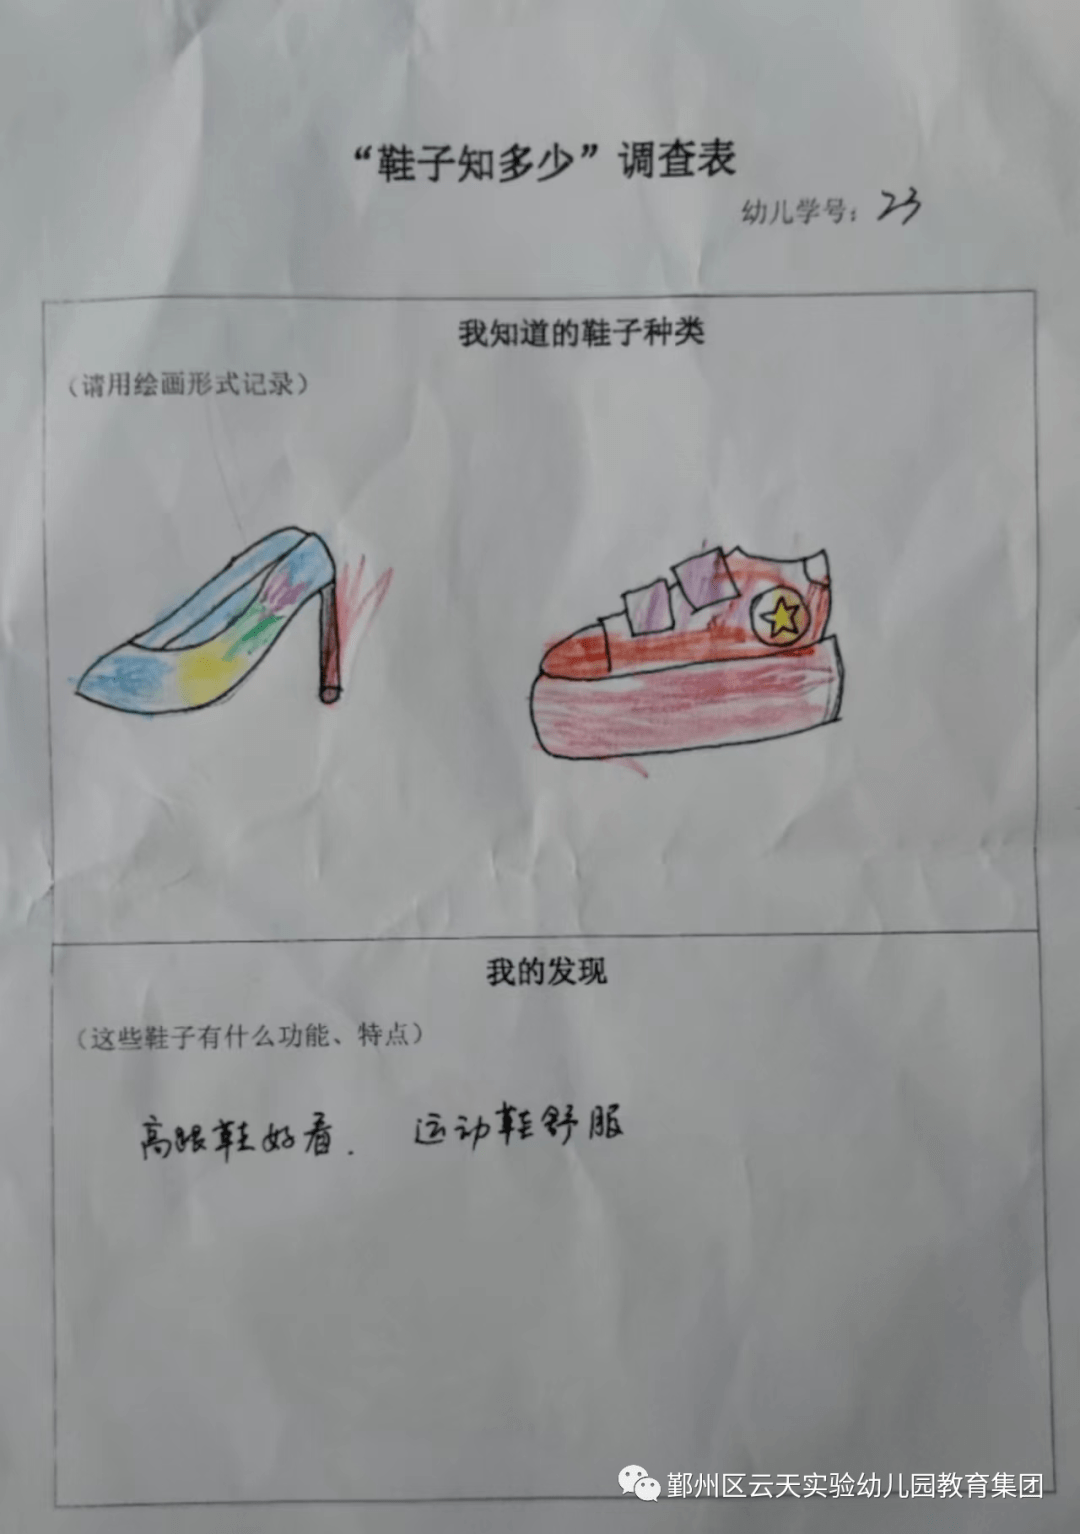 “鞋子知多少”调查表
幼儿学号：23
我知道的鞋子种类
（请用绘画形式记录）
我的发现
（这些鞋子有什么功能、特点）
高跟鞋好看. 运动鞋舒服
鄞州区云天实验幼儿园教育集团